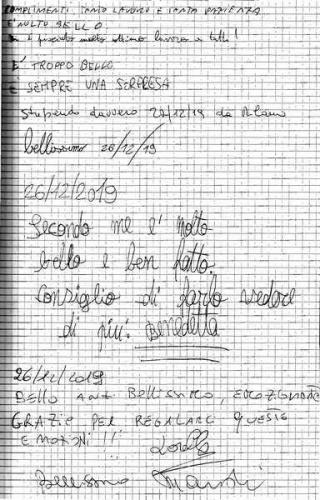 COMPLIMENTI TANTO LAVORO E TANTA PAZIENZA
È MOLTO BELLO
è piaciuto molto ottimo lavoro a tutti!
E' TROPPO BELLO
E SEMPRE UNA SORPRESA
stupendo davvero 22/12/19 da Milano
bellissimo 26/12/19
26/12/2019
Secondo me e' molto
bello e ben fatto.
consiglio di farlo vedere
di piu: Benedetta
26/12/2019
BELLO ANZI BELLISSIMO, EMOZIONANTE
GRAZIE PER REGALARCI QUESTE
EMOZIONI!!!
Bellissimo